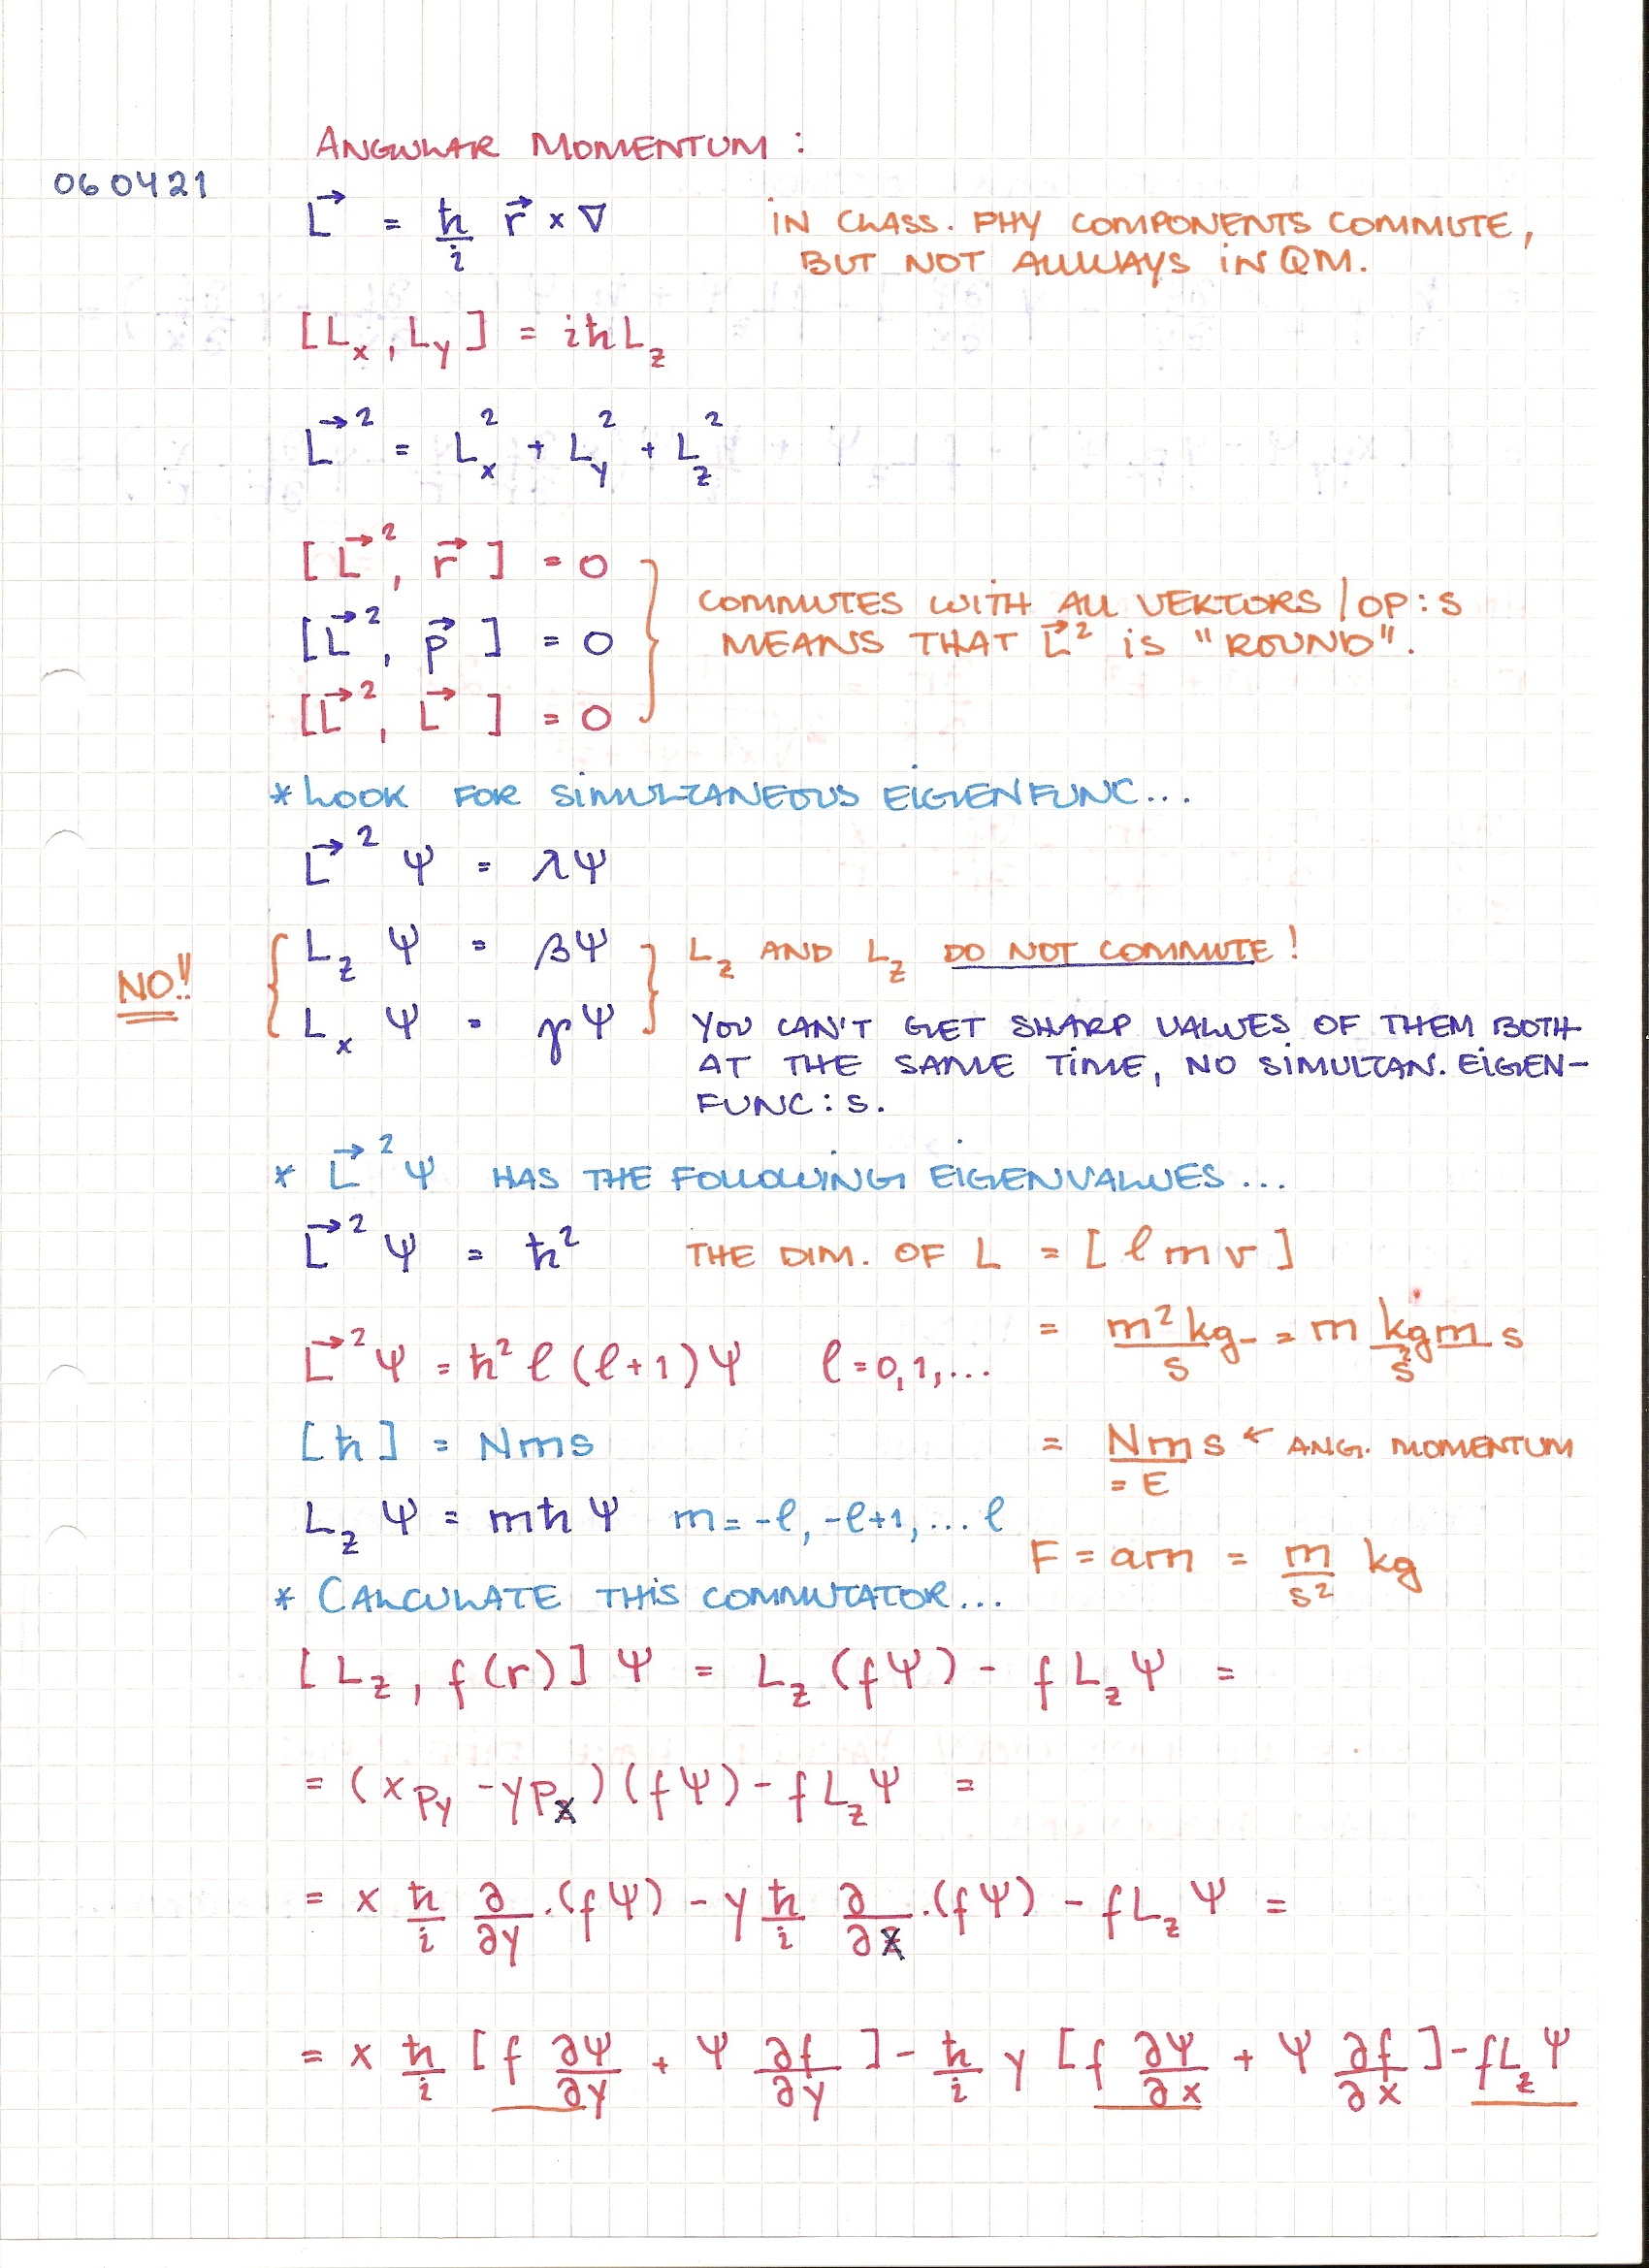 ANGULAR MOMENTUM :
060421
L⃗ = ħ/i r⃗ × ∇
IN CLASS. PHY COMPONENTS COMMUTE,
BUT NOT ALLWAYS IN QM.
[Lx, Ly] = iħLz
L⃗² = Lx² + Ly² + Lz²
[L⃗², r⃗] = 0
[L⃗², p⃗] = 0
[L⃗², L⃗] = 0
COMMUTES WITH ALL VEKTORS/OP:S
MEANS THAT L⃗² IS "ROUND".
* LOOK FOR SIMULTANEOUS EIGENFUNC...
L⃗² Ψ = λΨ
NO!!
Lz Ψ = βΨ
Lx Ψ = γΨ
Lz AND Lz DO NOT COMMUTE!
YOU CAN'T GET SHARP VALUES OF THEM BOTH
AT THE SAME TIME, NO SIMULTAN. EIGEN-
FUNC:S.
* L⃗² Ψ HAS THE FOLLOWING EIGENVALUES...
L⃗² Ψ = ħ²
THE DIM. OF L = [l m v]
= m² kg/s = m kg m/s² s
L⃗² Ψ = ħ² l(l+1)Ψ l = 0,1,...
[ħ] = Nms
= Nms ← ANG. MOMENTUM
= E
Lz Ψ = mħΨ m = -l, -l+1, ... l
F = am = m/s² kg
* CALCULATE THIS COMMUTATOR...
[Lz, f(r)]Ψ = Lz(fΨ) - f LzΨ =
= (x py - y px)(fΨ) - f LzΨ =
= x ħ/i ∂/∂y ·(fΨ) - y ħ/i ∂/∂x ·(fΨ) - f LzΨ =
= x ħ/i [f ∂Ψ/∂y + Ψ ∂f/∂y] - ħ/i y [f ∂Ψ/∂x + Ψ ∂f/∂x] - f LzΨ